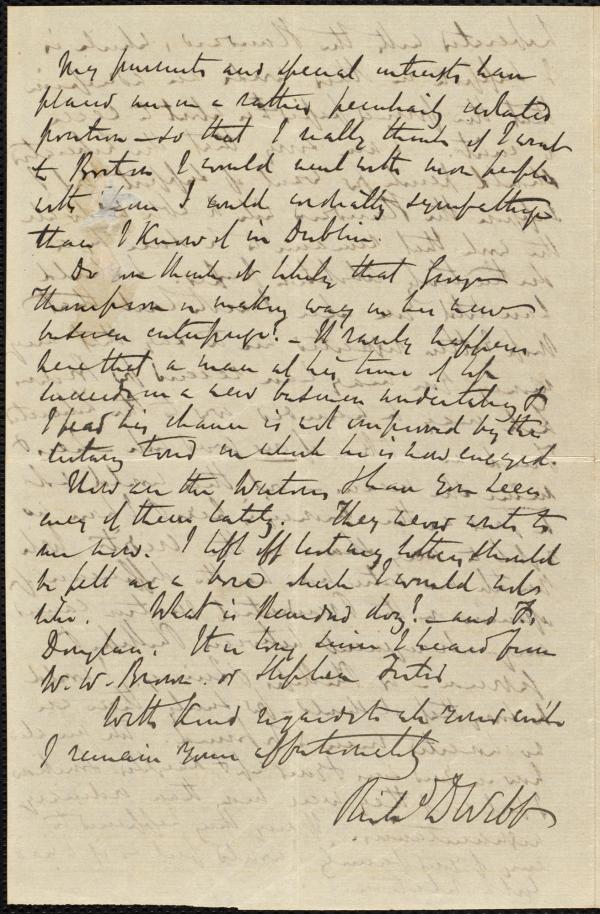 My pursuits and special interests have
placed me in a rather peculiarly isolated
position – so that I really think if I went
to Boston I would meet with more people
with whom I could cordially sympathize
than I know of in Dublin.
Do you think it likely that George
Thompson is making way in his new
business enterprize? – It rarely happens
here that a man at his time of life
succeeds in a new business undertaking &
I fear his chance is not improved by the
literary tone in which he is now engaged.
How are the Westons & have you seen
any of them lately. They never write to
me now. I left off lest my letters should
be felt as a bore which I would not
like. What is Remond doing? – and F.
Douglass. It is long since I heard from
W. W. Brown. or Stephen Foster
With kind regards to all your circle
I remain yours affectionately
Richd D Webb